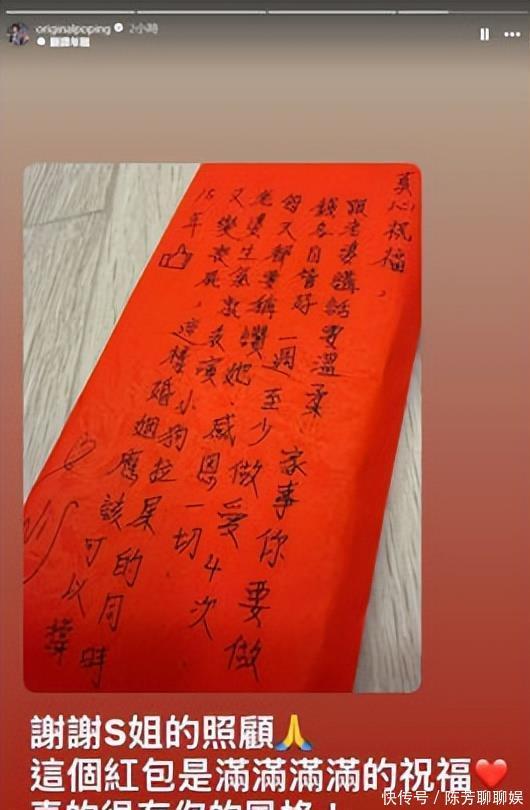 originalpoping 2小時
真心祝福,
跟老婆講話要溫柔 家事你要做
錢各自管好 一週至少做愛4次
每又都要稱讚她.感恩一切
老婆生氣表演小狗拉屎的同時
又裝死,這樣婚姻應該可以撐
15年
謝謝S姐的照顧🙏
這個紅包是滿滿滿滿的祝福❤️
快传号 / 陈芳聊聊娱